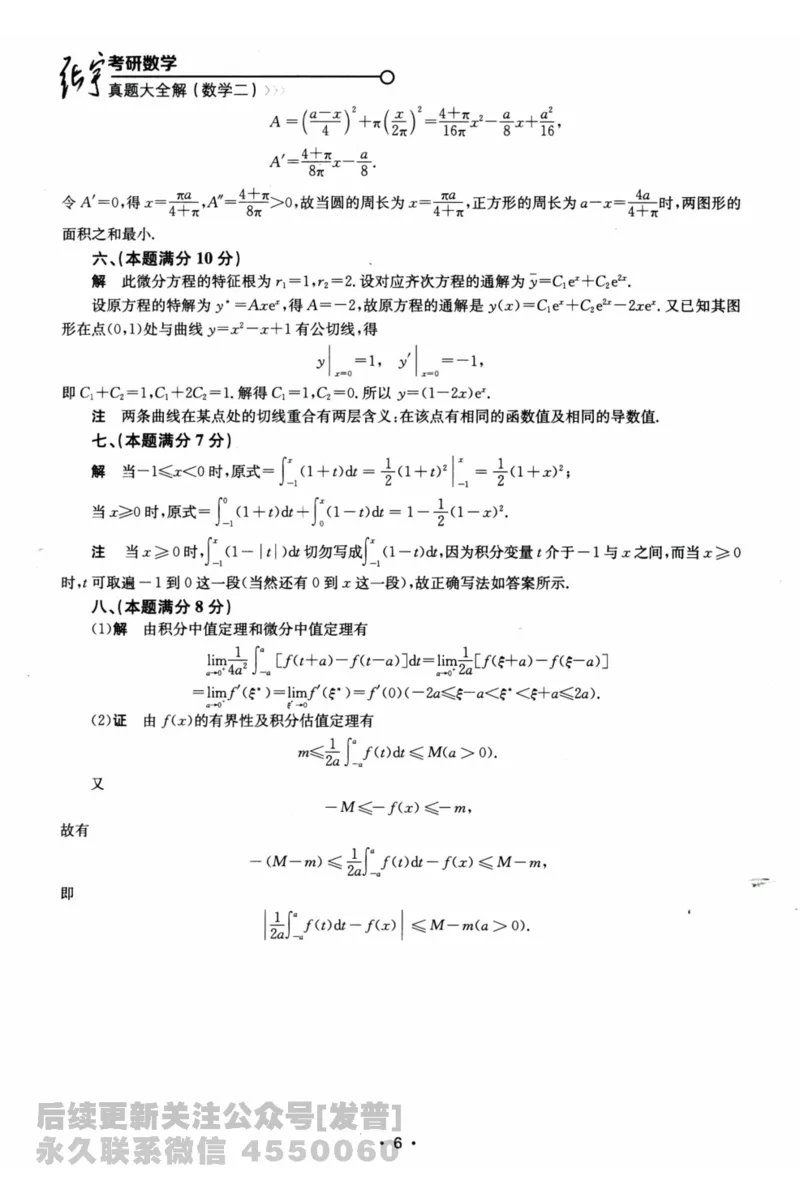 张宇考研数学
真题大全解(数学二)>>>
A=((a-x)/4)²+π(x/(2π))²=(4+π)/(16π)x²-(a/8)x+a²/16,
A′=(4+π)/(8π)x-a/8.
令A′=0,得x=πa/(4+π),A″=(4+π)/(8π)>0,故当圆的周长为x=πa/(4+π),正方形的周长为a-x=4a/(4+π)时,两图形的
面积之和最小.
六、(本题满分10分)
解 此微分方程的特征根为r₁=1,r₂=2.设对应齐次方程的通解为ȳ=C₁eˣ+C₂e²ˣ.
设原方程的特解为y*=Axeˣ,得A=-2,故原方程的通解是y(x)=C₁eˣ+C₂e²ˣ-2xeˣ.又已知其图
形在点(0,1)处与曲线y=x²-x+1有公切线,得
y|_{x=0}=1, y′|_{x=0}=-1,
即C₁+C₂=1,C₁+2C₂=1.解得C₁=1,C₂=0.所以y=(1-2x)eˣ.
注 两条曲线在某点处的切线重合有两层含义:在该点有相同的函数值及相同的导数值.
七、(本题满分7分)
解 当-1≤x<0时,原式=∫_{-1}^{x}(1+t)dt=½(1+t)²|_{-1}^{x}=½(1+x)²;
当x≥0时,原式=∫_{-1}^{0}(1+t)dt+∫_{0}^{x}(1-t)dt=1-½(1-x)².
注 当x≥0时,∫_{-1}^{x}(1-|t|)dt切勿写成∫_{-1}^{x}(1-t)dt,因为积分变量t介于-1与x之间,而当x≥0
时,t可取遍-1到0这一段(当然还有0到x这一段),故正确写法如答案所示.
八、(本题满分8分)
(1)解 由积分中值定理和微分中值定理有
lim_{a→0⁺}1/(4a²)∫_{-a}^{a}[f(t+a)-f(t-a)]dt=lim_{a→0⁺}1/(2a)[f(ξ+a)-f(ξ-a)]
=lim_{a→0⁺}f′(ξ*)=lim_{ξ*→0}f′(ξ*)=f′(0)(-2a≤ξ-a<ξ*<ξ+a≤2a).
(2)证 由f(x)的有界性及积分估值定理有
m≤1/(2a)∫_{-a}^{a}f(t)dt≤M(a>0).
又
-M≤-f(x)≤-m,
故有
-(M-m)≤1/(2a)∫_{-a}^{a}f(t)dt-f(x)≤M-m,
即
|1/(2a)∫_{-a}^{a}f(t)dt-f(x)|≤M-m(a>0).
后续更新关注公众号[发普]
永久联系微信 4550060
·6·